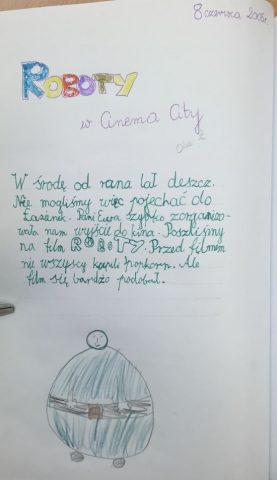 8 czerwca 2005r.
ROBOTY
w Cinema City
Ola Ż
W środę od rana lał deszcz.
Nie mogliśmy więc pojechać do
Łazienek. Pani Ewa szybko zorganizo-
wała nam wyjście do kina. Poszliśmy
na film ROBOTY. Przed filmem
nie wszyscy kupili popkorn. Ale
film się bardzo podobał.